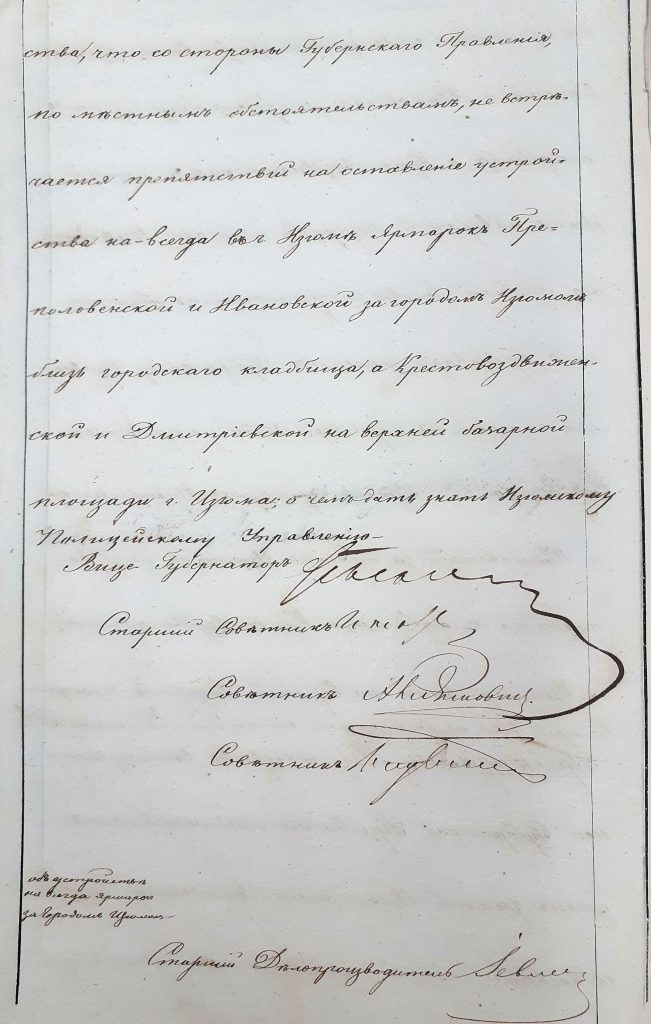 ства, что со стороны Губернскаго Правленія,
по мѣстнымъ обстоятельствамъ, не встрѣ-
чается препятствій на оставленіе устрой-
ства на-всегда въ г. Изюмѣ Ярмарокъ Пре-
половенской и Ивановской за городомъ Изюмомъ
близь городскаго кладбища, а Крестовоздвижен-
ской и Дмитріевской на верхней базарной
площади г. Изюма; о чемъ дать знать Изюмскому
Полицейскому Управленію
Вице-Губернаторъ
Старшій Совѣтникъ
Совѣтникъ
Совѣтникъ
объ устройствѣ
на всегда ярмарок
за городомъ Изюмомъ
Старшій Дѣлопроизводитель